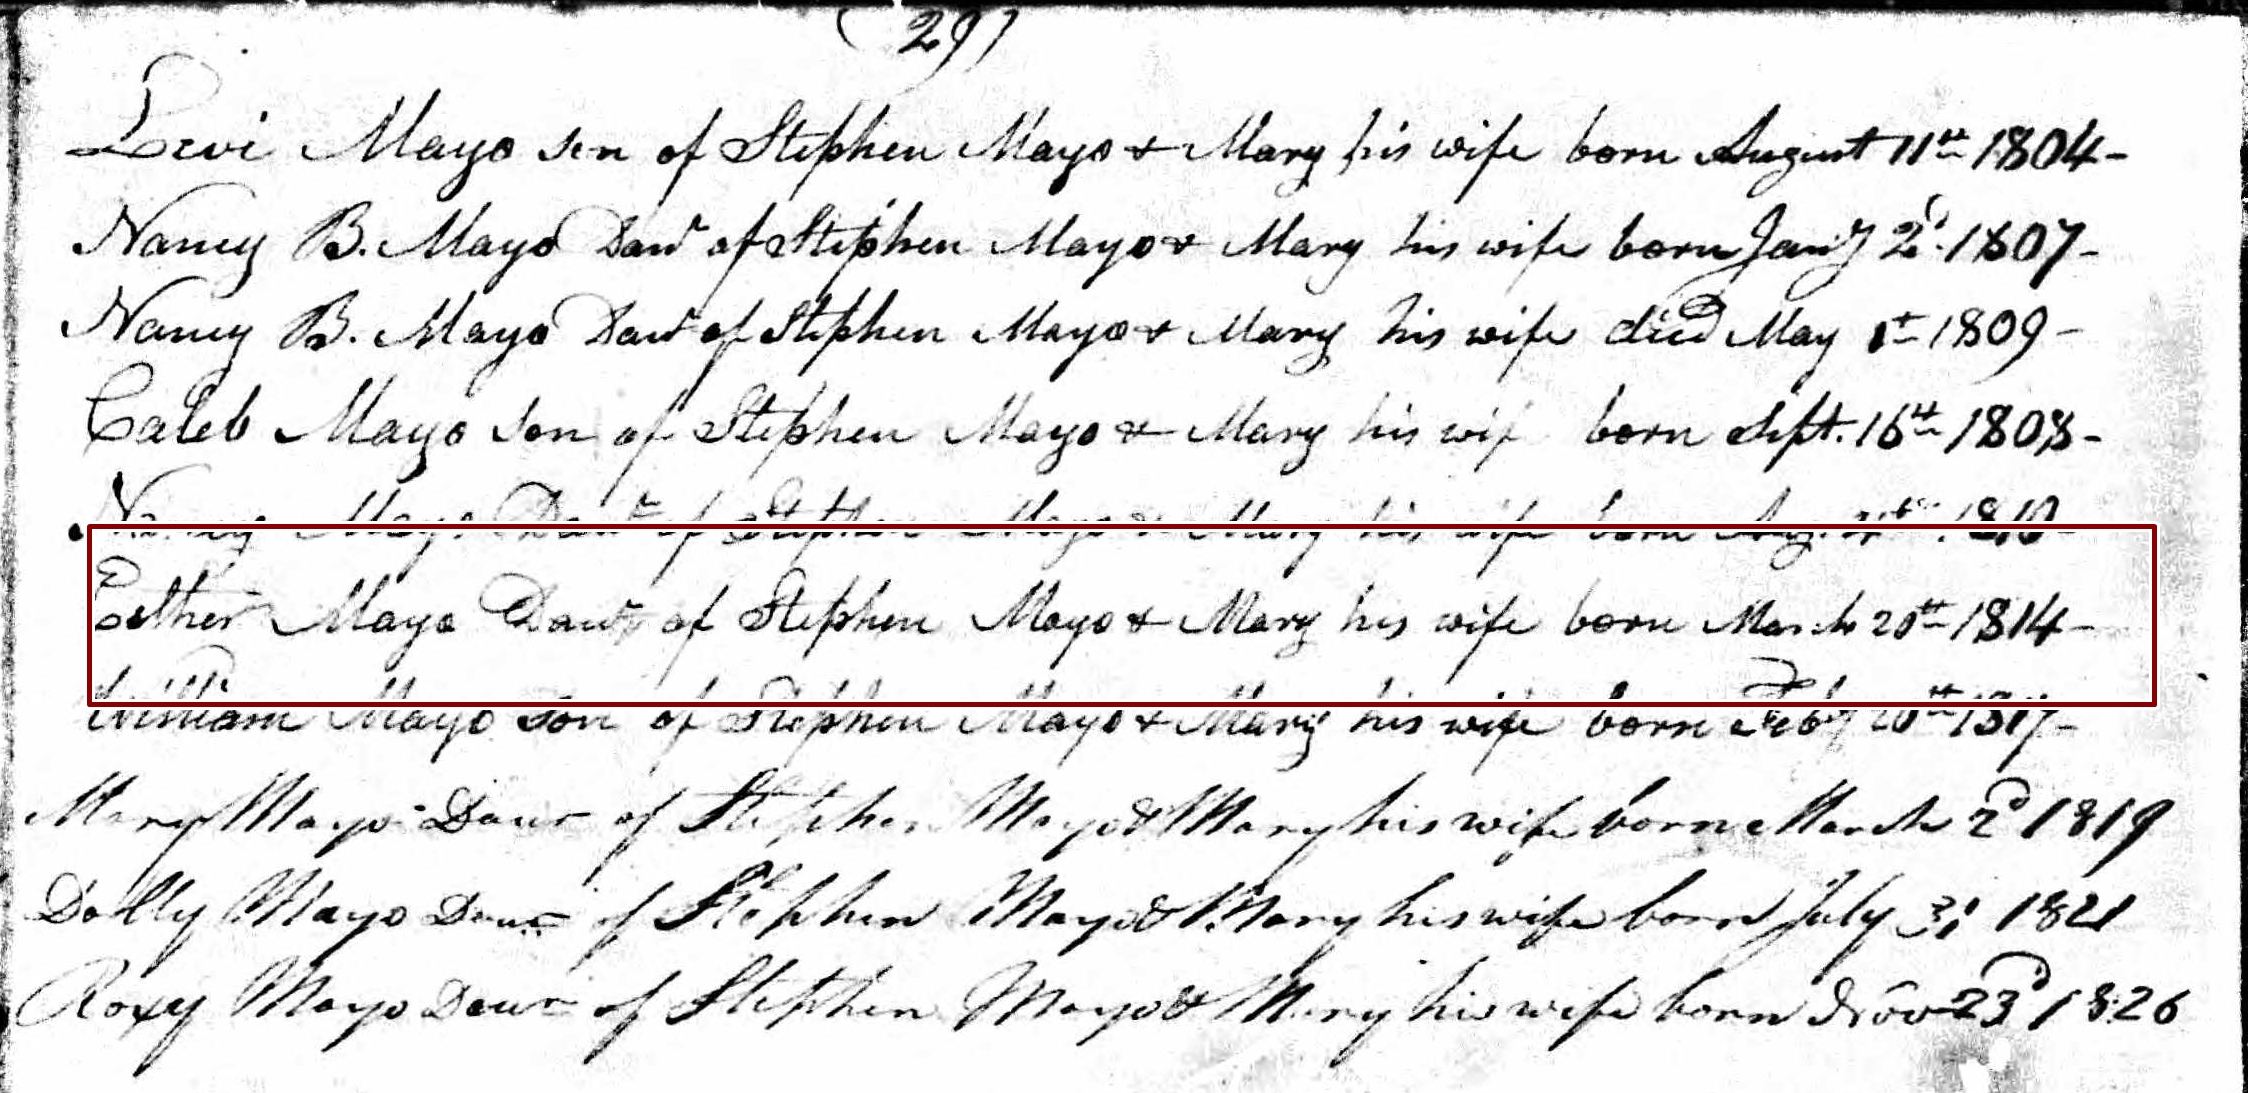 (29)
Levi Mayo son of Stephen Mayo & Mary his wife born August 11th 1804-
Nancy B. Mayo Daur of Stephen Mayo & Mary his wife born Jany 2d. 1807-
Nancy B. Mayo Daur of Stephen Mayo & Mary his wife died May 1st 1809-
Caleb Mayo son of Stephen Mayo & Mary his wife born Sept. 16th 1808-
Nancy Mayo Daur of Stephen Mayo & Mary his wife born Aug. 1810-
Esther Mayo Daur of Stephen Mayo & Mary his wife born March 20th 1814-
William Mayo Son of Stephen Mayo & Mary his wife born Feby 20th 1817-
Mary Mayo Daur of Stephen Mayo & Mary his wife born March 2d 1819
Dolly Mayo Daur of Stephen Mayo & Mary his wife born July 31 1821
Roxy Mayo Daur of Stephen Mayo & Mary his wife born Nov 23d 1826